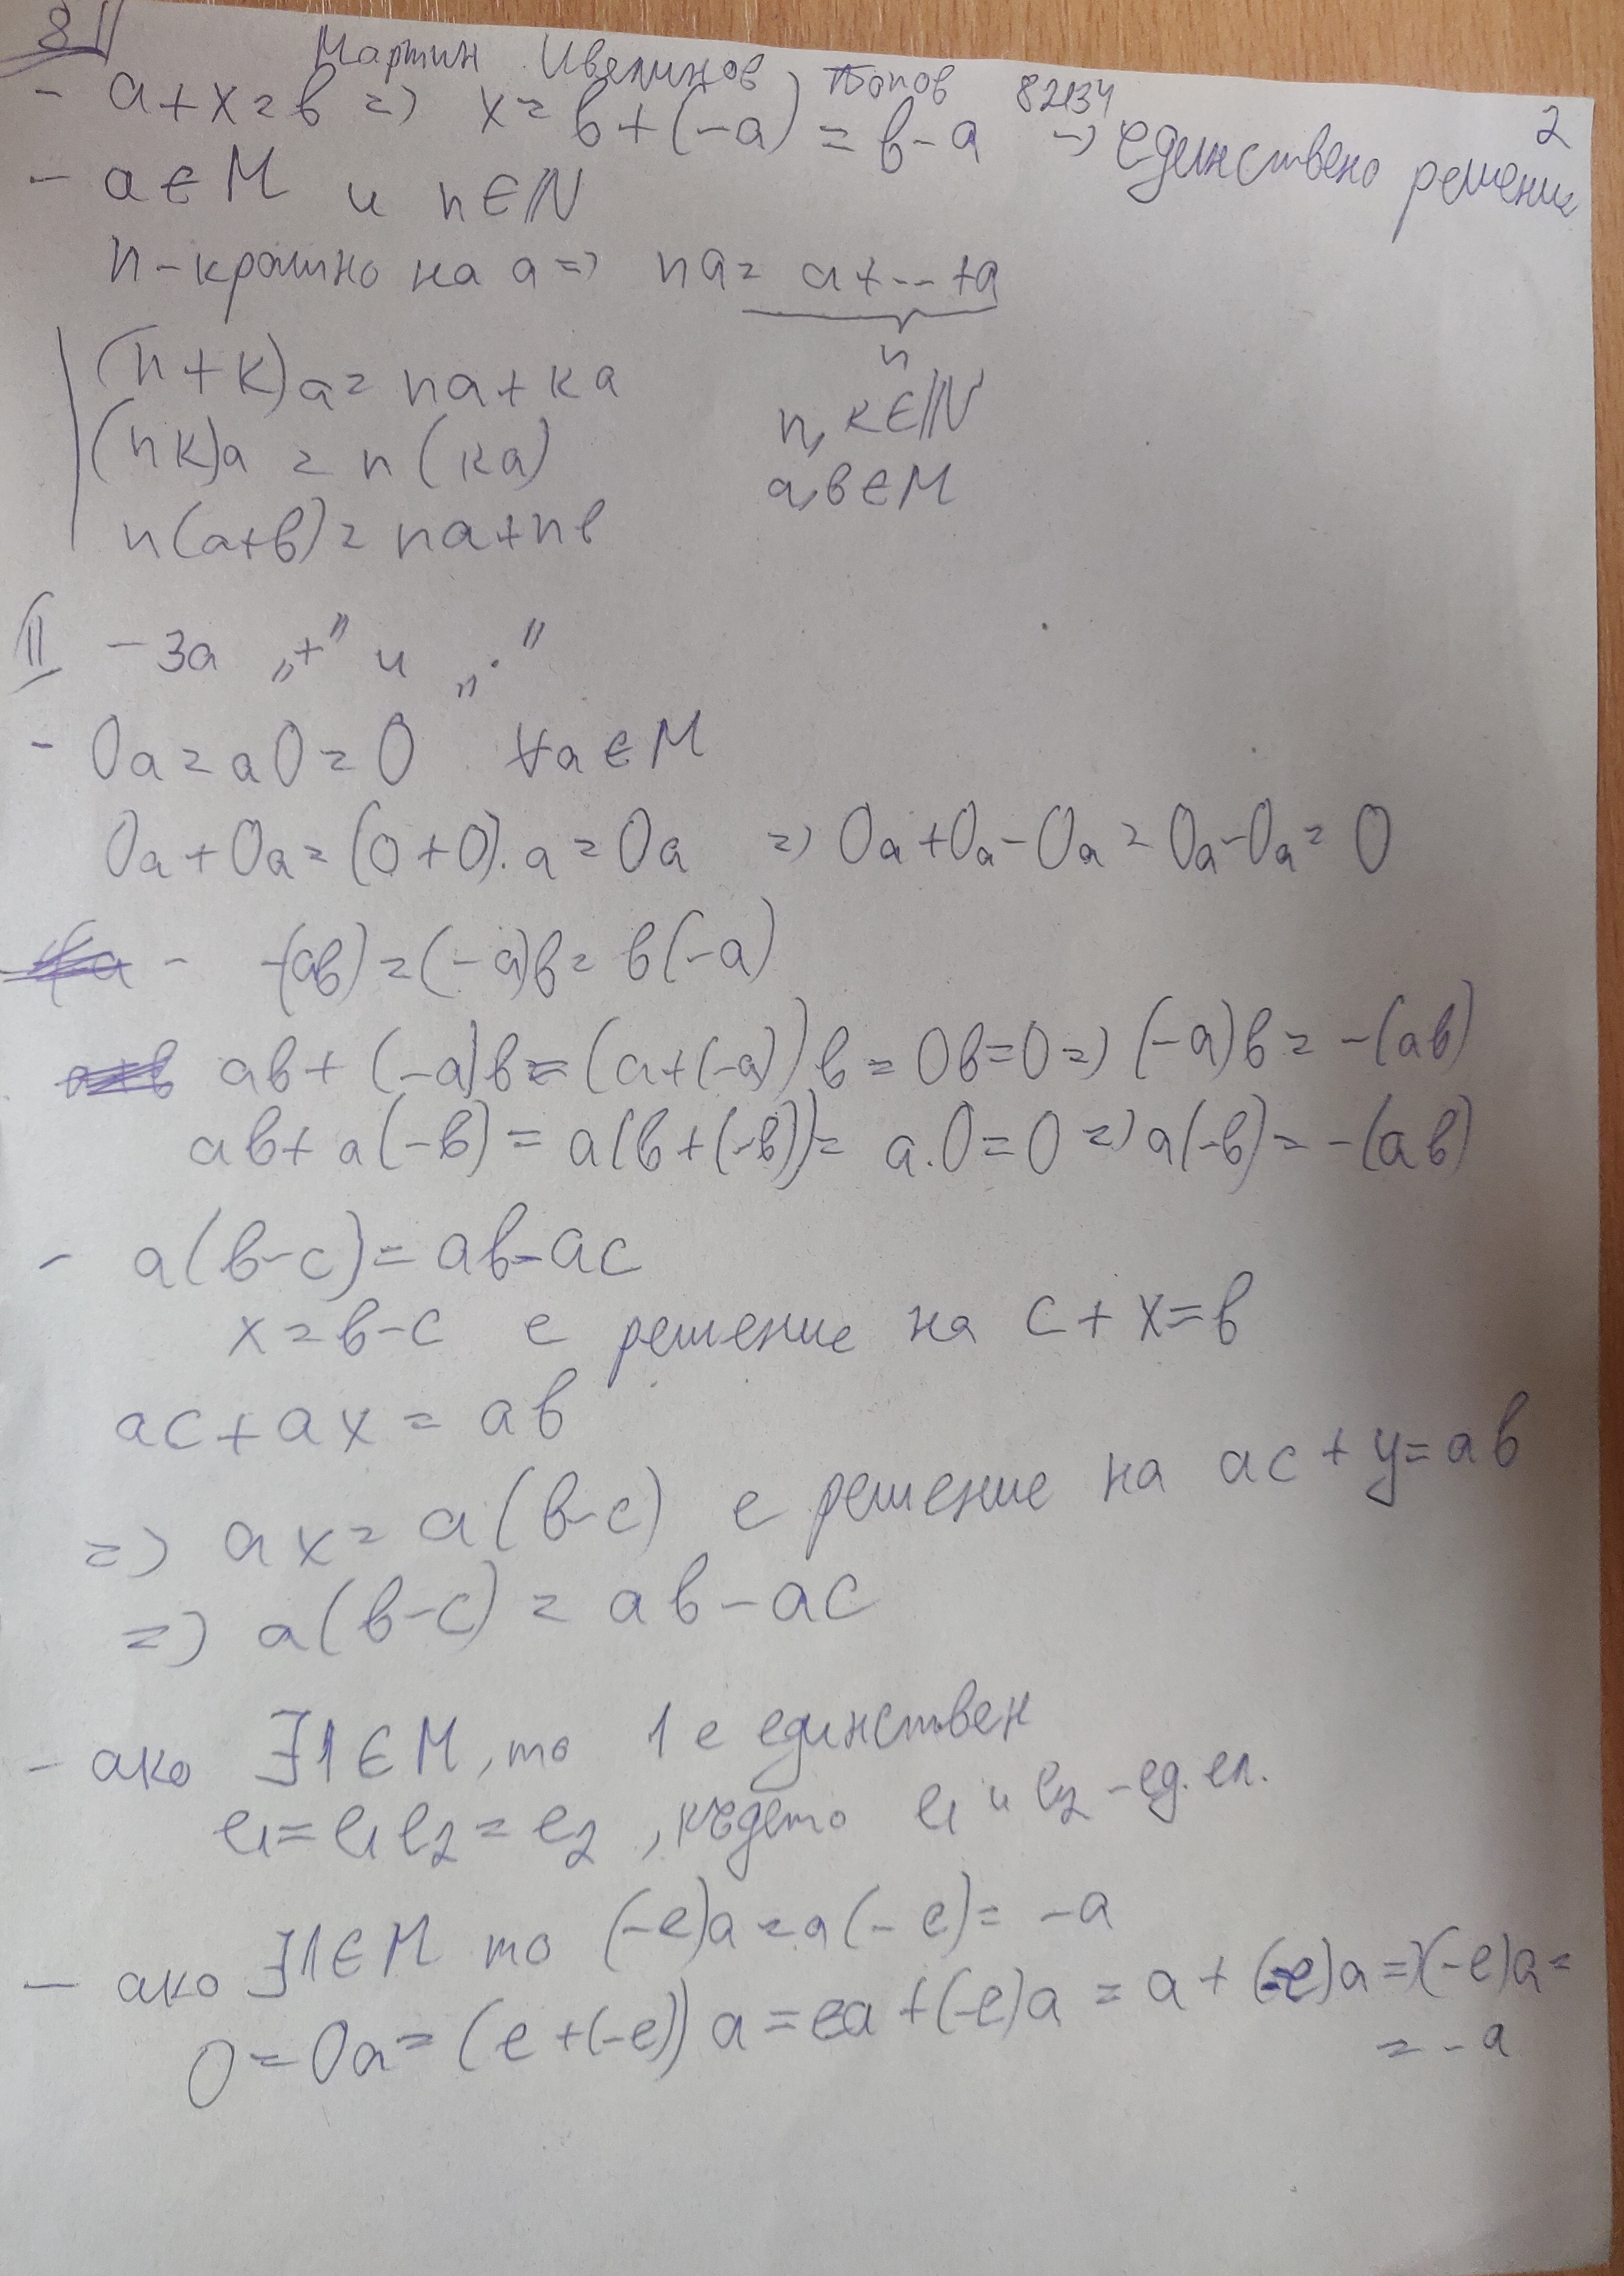 8||
Мартин Ивелинов Попов 82134
2
- a+x=b => x=b+(-a)=b-a -> единствено решение
- a∈M и n∈N
n-кратно на a => na= a+...+a
n
(n+k)a=na+ka
(nk)a = n(ka)
n(a+b)=na+nb
n, k∈N
a,b∈M
II - За „+" и „."
- 0a=a0=0 ∀a∈M
0a+0a=(0+0).a=0a => 0a+0a-0a=0a-0a=0
- -(ab)=(-a)b=b(-a)
ab+(-a)b=(a+(-a))b=0b=0=>(-a)b=-(ab)
ab+a(-b)=a(b+(-b))=a.0=0=>a(-b)=-(ab)
- a(b-c)=ab-ac
x=b-c е решение на c+x=b
ac+ax=ab
=> ax=a(b-c) е решение на ac+y=ab
=> a(b-c)=ab-ac
- ако ∃1∈M, то 1 е единствен
e1=e1e2=e2, където e1 и e2 - ед. ел.
- ако ∃1∈M то (-e)a=a(-e)=-a
0=0a=(e+(-e))a=ea+(-e)a=a+(-e)a=>(-e)a=
=-a